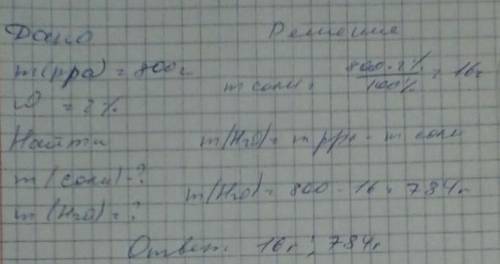 Дано
Решение
m(рра) = 800г
ω = 2%
m соли = 800·2% / 100% = 16г
Найти
m(H2O) = m рра - m соли
m(соли)-?
m(H2O) = 800 - 16 = 784г
m(H2O) = ?
Ответ: 16г; 784г